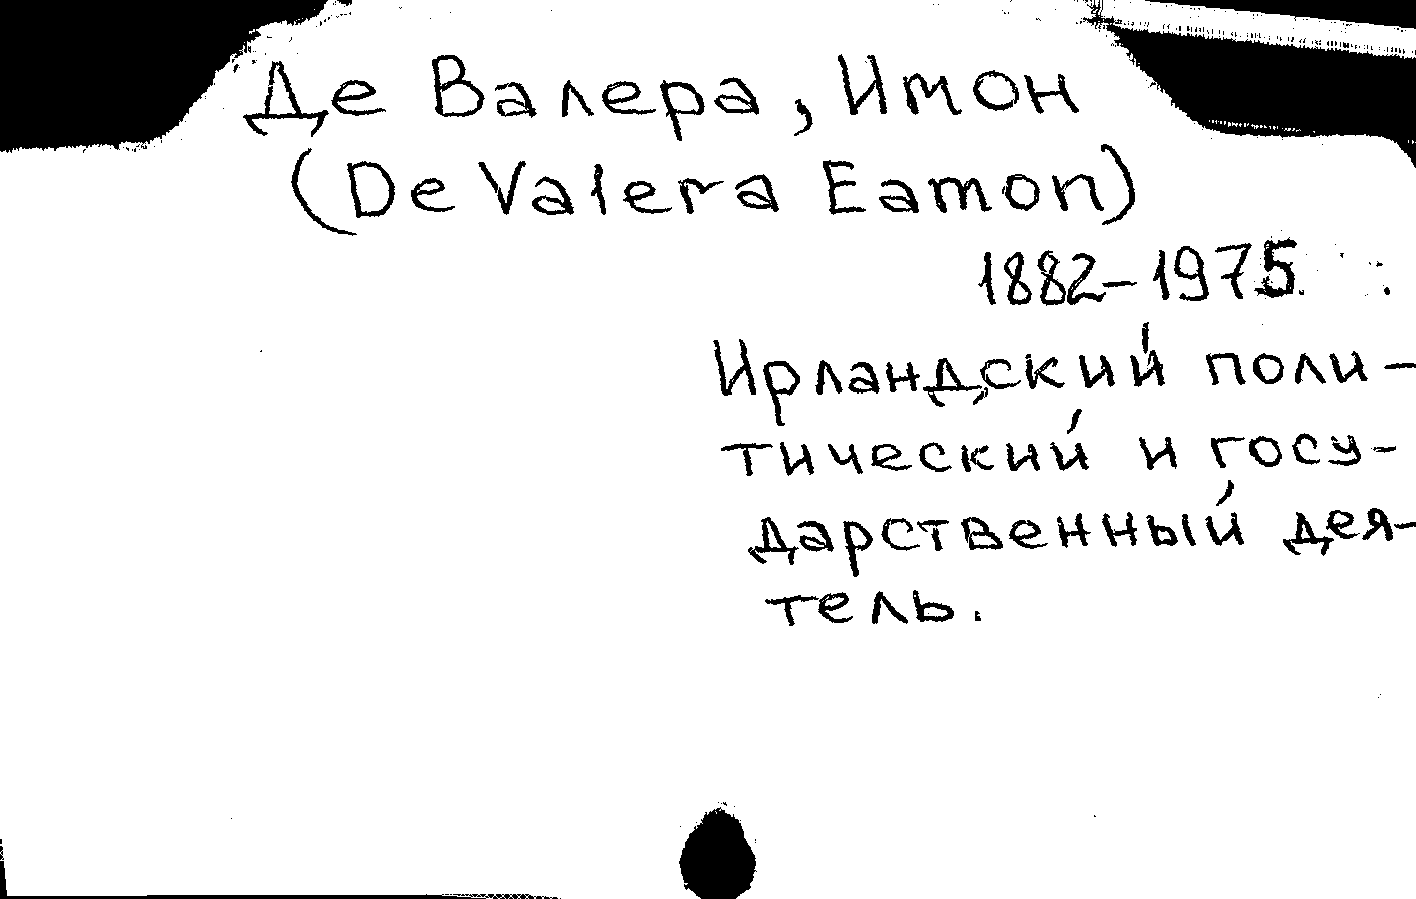 Де Валера, Имон
(De Valera Eamon)
1882-1975
Ирландский поли-
тический и госу-
дарственный дея-
тель.